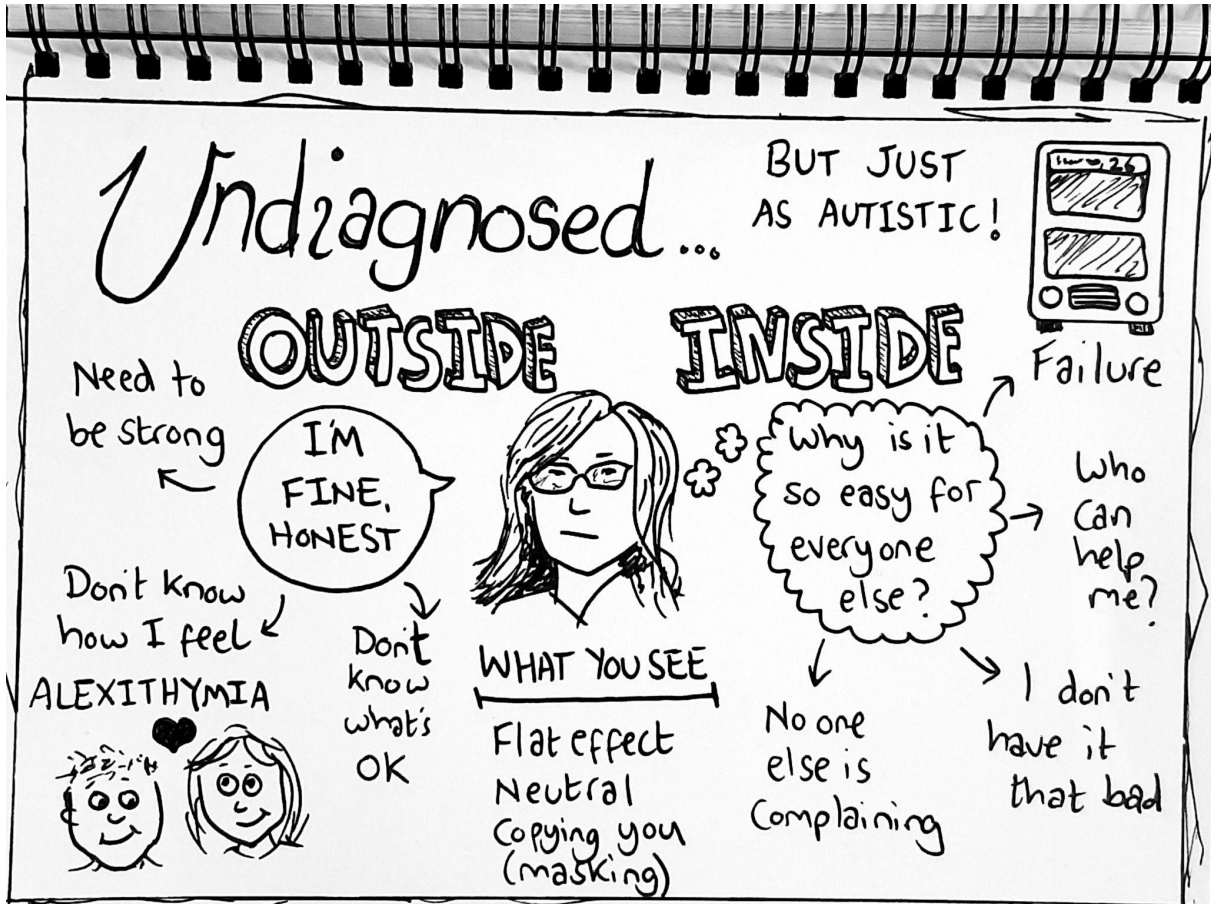 Undiagnosed...
BUT JUST
AS AUTISTIC!
OUTSIDE
INSIDE
Need to
be strong
I'M
FINE,
HONEST
Don't know
how I feel
ALEXITHYMIA
Don't
know
what's
OK
WHAT YOU SEE
Flat effect
Neutral
Copying you
(masking)
Why is it
so easy for
everyone
else?
Failure
Who
can
help
me?
I don't
have it
that bad
No one
else is
Complaining
26